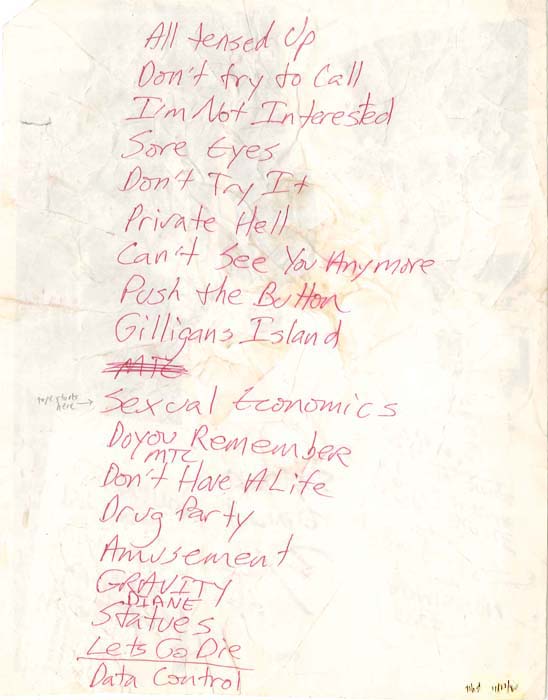 All tensed Up
Don't try to Call
I'm Not Interested
Sore Eyes
Don't Try It
Private Hell
Can't See You Anymore
Push the Button
Gilligans Island
MTC
tape starts
here →
Sexual Economics
Do you Remember
MTC
Don't Have A Life
Drug Party
Amusement
GRAVITY
DIANE
Statues
Lets Go Die
Data Control